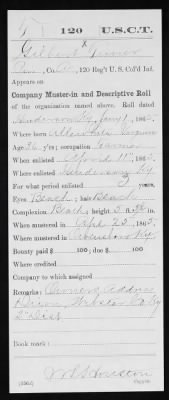 120 U.S.C.T.
Gilbert
Co. , 120 Reg't U. S. Col'd Inf.
Appears on
Company Muster-in and Descriptive Roll
of the organization named above. Roll dated
Henderson Ky, , 1865.
Where born
Age 36 y'rs; occupation Farmer
When enlisted April 11, 1865.
Where enlisted Ky
For what period enlisted years.
Eyes Black; hair Black
Complexion Black; height 5 ft. in.
When mustered in Apl 25, 1865.
Where mustered in Ky
Bounty paid $ 100; due $ 100
Where credited
Company to which assigned
Remarks: Owners Address
Dixon, Webster Co. Ky
2" Dist
Book mark:
Houston
Copyist.